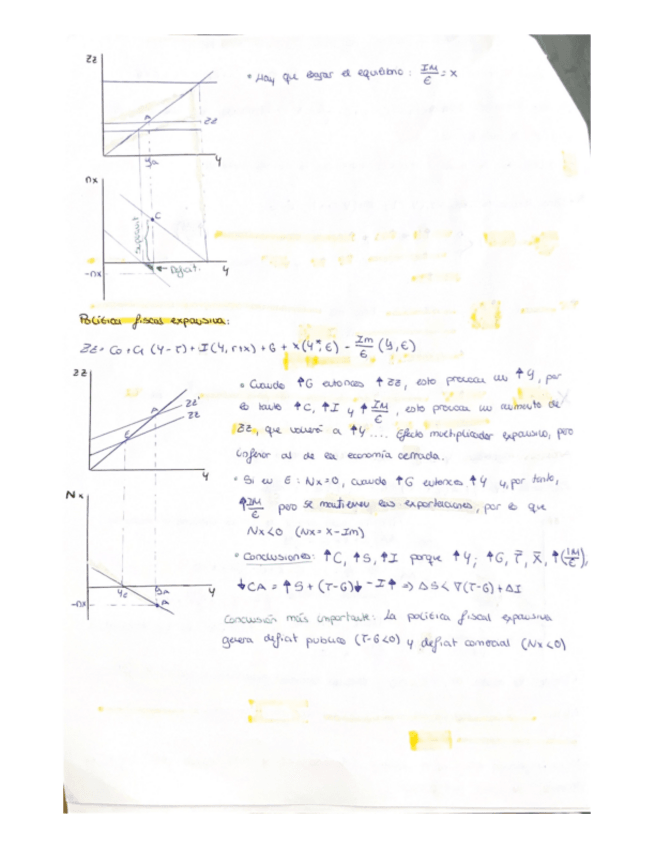 ZZ
• Hay que bajar el equilibrio: IM/ε = X
A
ZZ
YA
Y
nx
C
superavit
← Deficit.
-nx
Y
Política fiscal expansiva:
ZZ = C0 + C1 (Y-T) + I (Y, r+x) + G + X (Y*, ε) - Im/ε (Y, ε)
ZZ
• Cuando ↑G entonces ↑ZZ, esto provoca un ↑Y, por
lo tanto ↑C, ↑I y ↑IM/ε, esto provoca un aumento de
ZZ, que volverá a ↑Y .... Efecto multiplicador expansivo, pero
inferior al de la economía cerrada.
A
ZZ'
ZZ
E
Y
• Si en E: Nx=0, cuando ↑G entonces ↑Y y, por tanto,
↑IM/ε pero se mantienen las exportaciones, por lo que
Nx<0 (Nx = X-Im)
Nx
• Conclusiones: ↑C, ↑S, ↑I porque ↑Y; ↑G, T̄, X̄, ↑(IM/ε),
↓CA = ↑S + (T-G)↓ - I↑ => ΔS < ∇(T-G) + ΔI
YE
YA
Y
-nx
A
Conclusión más importante: La política fiscal expansiva
genera déficit publico (T-G<0) y déficit comercial (Nx<0)